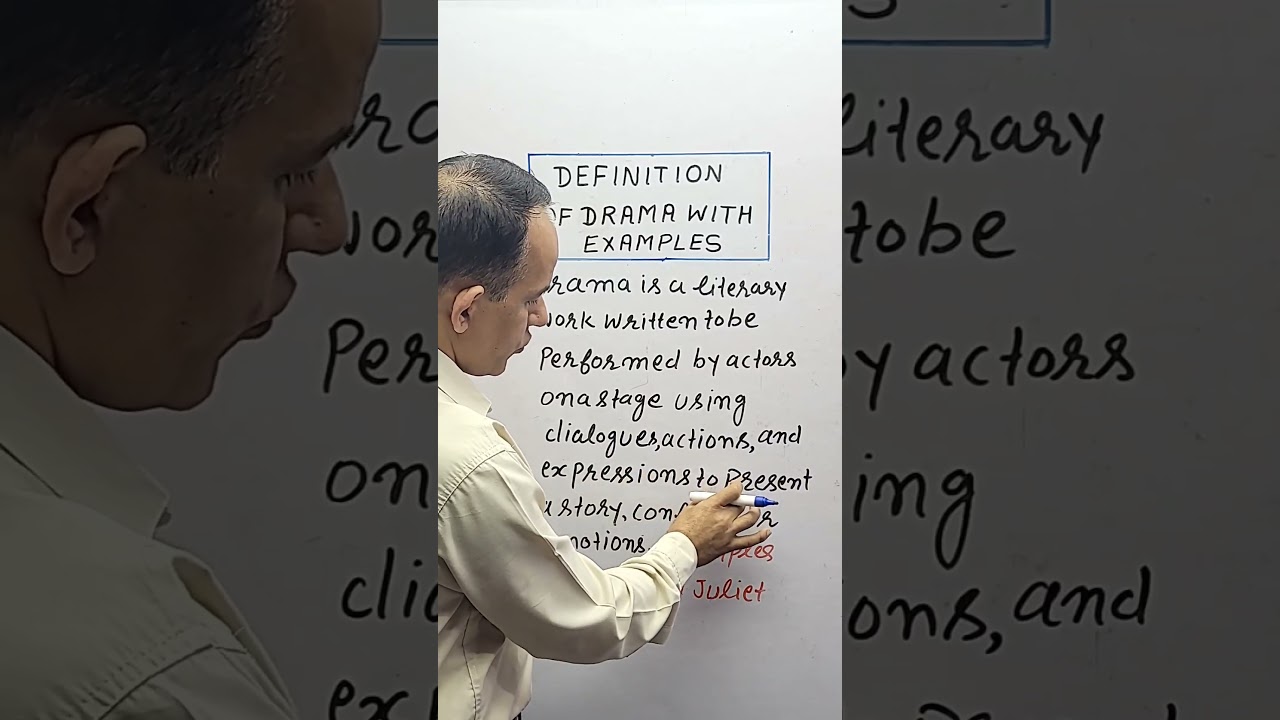 DEFINITION
OF DRAMA WITH
EXAMPLES
Drama is a literary
work written to be
Performed by actors
on a stage using
dialogues, actions, and
expressions to Present
a story,
Juliet